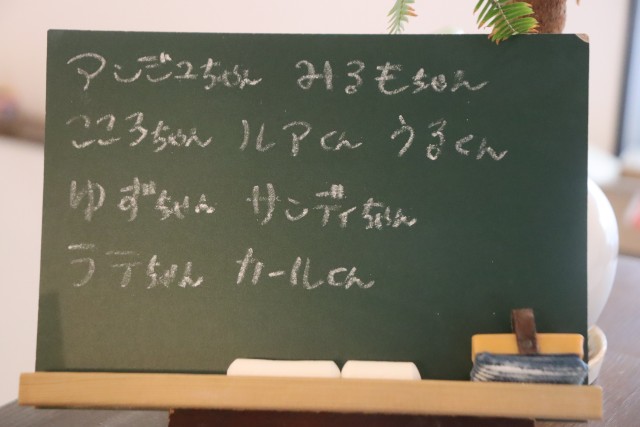 アンジュちゃん みるもちゃん
こころちゃん ルアくん うるくん
ゆずちゃん サンディちゃん
ラテちゃん カールくん